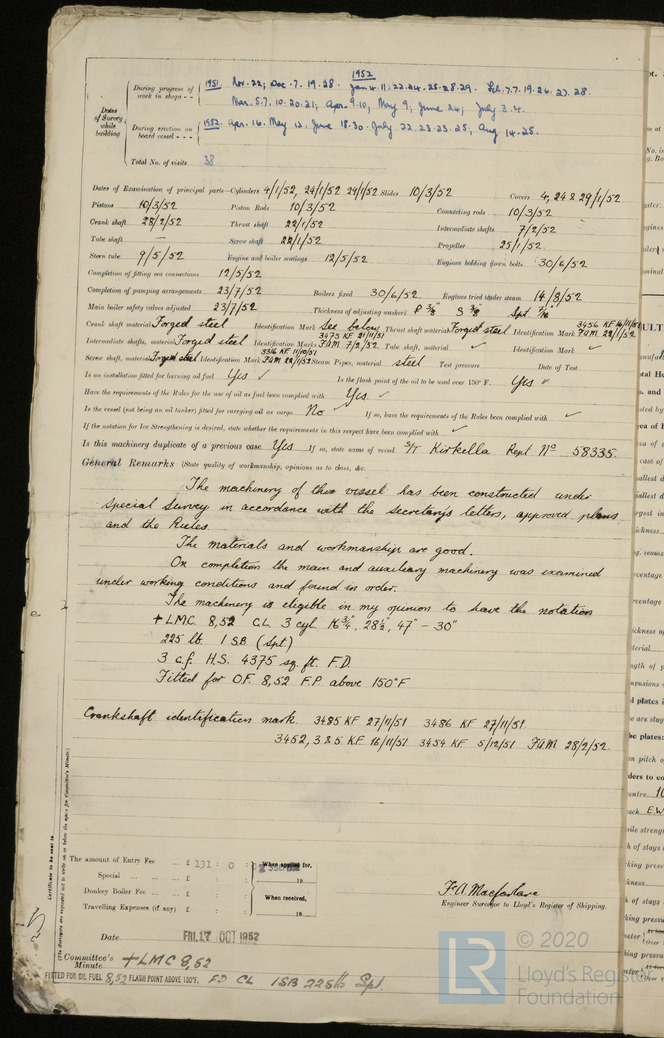 Dates of Survey while building
During progress of work in shops - -
1951. Nov. 22; Dec. 7. 19. 28. 1952 Jan 4. 11. 22. 24. 25. 28. 29. Feb. 7. 7. 19. 26. 27. 28.
Mar. 5. 7. 10. 20. 21; Apr. 9. 10, May 9, June 24; July 3. 4.
During erection on board vessel - - -
1952. Apr. 16. May 12. June 18. 30. July 22. 23. 23. 25; Aug 14. 25.
Total No. of visits 38
Dates of Examination of principal parts—Cylinders 4/1/52, 24/1/52 29/1/52 Slides 10/3/52 Covers 4, 24 & 29/1/52
Pistons 10/3/52 Piston Rods 10/3/52 Connecting rods 10/3/52
Crank shaft 28/2/52 Thrust shaft 22/1/52 Intermediate shafts 7/2/52
Tube shaft — Screw shaft 22/1/52 Propeller 25/1/52
Stern tube 9/5/52 Engine and boiler seatings 12/5/52 Engines holding down bolts 30/6/52
Completion of fitting sea connections 12/5/52
Completion of pumping arrangements 23/7/52 Boilers fixed 30/6/52 Engines tried under steam 14/8/52
Main boiler safety valves adjusted 23/7/52 Thickness of adjusting washers P 3/8 S 3/8 Spt
Crank shaft material Forged steel Identification Mark See below Thrust shaft material Forged steel Identification Mark 3456 KF 16/11/51 F.A.M. 22/1/52
Intermediate shafts, material Forged steel Identification Marks 3475 KF 21/11/51 F.A.M. 7/2/52 Tube shaft, material ✓ Identification Mark ✓
Screw shaft, material Forged steel Identification Mark 3316 KF 11/10/51 F.A.M 22/1/52 Steam Pipes, material steel Test pressure Date of Test
Is an installation fitted for burning oil fuel Yes ✓ Is the flash point of the oil to be used over 150° F. Yes ✓
Have the requirements of the Rules for the use of oil as fuel been complied with Yes ✓
Is the vessel (not being an oil tanker) fitted for carrying oil as cargo No ✓ If so, have the requirements of the Rules been complied with ✓
If the notation for Ice Strengthening is desired, state whether the requirements in this respect have been complied with ✓
Is this machinery duplicate of a previous case Yes If so, state name of vessel S/T Kirkella Rept No 58335
General Remarks (State quality of workmanship, opinions as to class, &c.
The machinery of this vessel has been constructed under
special survey in accordance with the secretary's letters, approved plans
and the Rules.
The materials and workmanship are good.
On completion the main and auxiliary machinery was examined
under working conditions and found in order.
The machinery is eligible in my opinion to have the notation
+ LMC. 8,52 CL. 3 cyl. 16 3/4", 28 1/2", 47" – 30"
225 lb. 1 SB (Spt)
3 c.f. H.S. 4375 sq. ft. F.D.
Fitted for O.F. 8,52 F.P. above 150°F
Crankshaft identification mark. 3485 KF 27/11/51 3486 KF 27/11/51.
3452, 3 & 5 KF 16/11/51 3454 KF 5/12/51 F.A.M. 28/2/52.
Certificate to be sent to
The amount of Entry Fee ... £ 131 : 0 :
When applied for,
Special ... ... £ : : 19
Donkey Boiler Fee ... £ : :
When received,
Travelling Expenses (if any) £ : : 19
F. A. Macfarlane
Engineer Surveyor to Lloyd's Register of Shipping.
Date FRI. 17 OCT 1952
Committee's Minute + LMC 8,52
FITTED FOR OIL FUEL 8,52 FLASH POINT ABOVE 150°F. FD CL 1SB 225 lb Spt.
LR © 2020
Lloyd's Register
Foundation